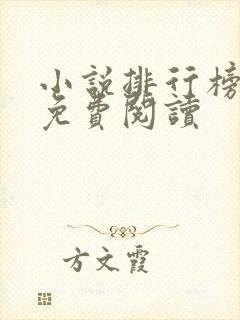 小說排行榜
免費閱讀
方文霞